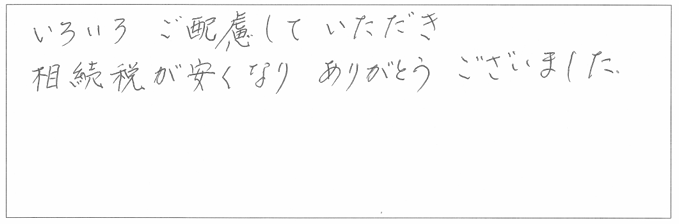 いろいろ ご配慮して いただき
相続税が安くなり ありがとう ございました.